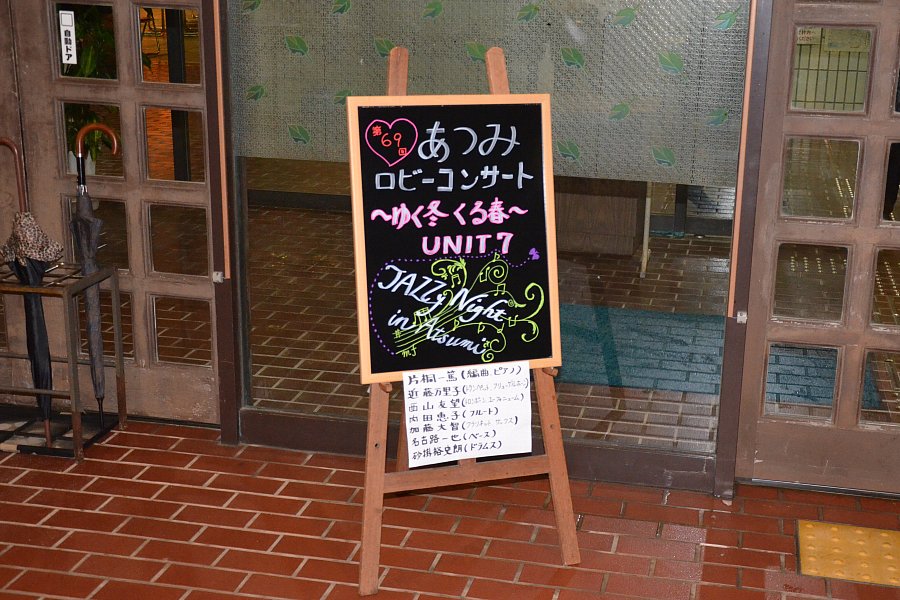 自動ドア
第69回
あつみ
ロビーコンサート
〜ゆく冬くる春〜
UNIT7
JAZZy Night
in Atsumi
片桐一篤(編曲,ピアノ)
近藤万里子(トランペット,フリューゲルホーン)
西山友望(トロンボーン,ユーフォニューム)
内田恵子(フルート)
加藤大智(クラリネット,サックス)
名古路一也(ベース)
砂掛裕史朗(ドラムス)